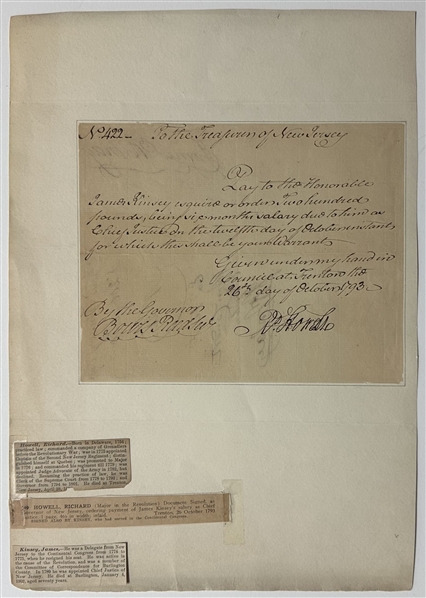 No. 422
To the Treasurer of New Jersey
Pay to the Honorable
James Kinsey esquire or order Two hundred
pounds, being six months salary due to him as
Chief Justice on the twelfth day of October instant
for which this shall be your Warrant
Given under my hand in
Council at Trenton the
26th day of October 1793
By the Governor
Rd. Howell
Howell, Richard.—Born in Delaware, 1754;
practised law; commanded a company of Grenadiers
before the Revolutionary War; was in 1775 appointed
Captain of the Second New Jersey Regiment;
himself at Quebec; was promoted to Major
in 1776; and commanded his regiment till 1779; was
appointed Judge Advocate of the Army in 1782, but
declined. Resuming the practice of law, he was
Clerk of the Supreme Court from 1778 to 1793, and
Governor from 1794 to 1801. He died at Trenton,
New Jersey, April
HOWELL, RICHARD (Major in the Revolution) Document Signed as
Governor of New Jersey, ordering payment of James Kinsey's salary as Chief
Justice. 1 page, Trenton, 26 October 1793
SIGNED ALSO BY KINSEY, who had served in the Continental Congress.
Kinsey, James.—He was a Delegate from New
Jersey to the Continental Congress from 1774 to
1775, when he resigned his seat. He was active in
the cause of the Revolution, and was a member of
the Committee of Correspondence for Burlington
County. In 1789 he was appointed Chief Justice of
New Jersey. He died at Burlington, January 4,
aged seventy years.